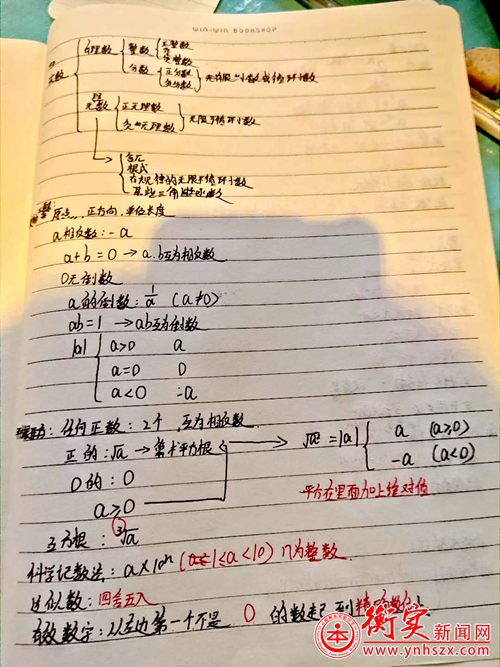 WIN-WIN BOOKSHOP
实数
有理数
整数
正整数
0
负整数
分数
正分数
负分数
无理数
正无理数
负无理数
无限不循环小数
含π
根式
原点, 正方向, 单位长度
a相反数: -a
a+b=0 → a.b互为相反数
0无倒数
a的倒数: 1/a (a≠0)
ab=1 → ab互为倒数
|a|
a>0 a
a=0 0
a<0 -a
任何正数: 2个, 互为相反数
正的: √a → 算术平方根
0的: 0
a≥0
√a² = |a|
a (a≥0)
-a (a<0)
平方在里面加上绝对值
立方根: ³√a
科学记数法: a×10ⁿ (1≤a<10) n为整数
近似数: 四舍五入
有效数字: 从左边第一个不是 0 的数起到
衡实新闻网
www.ynhszx.com